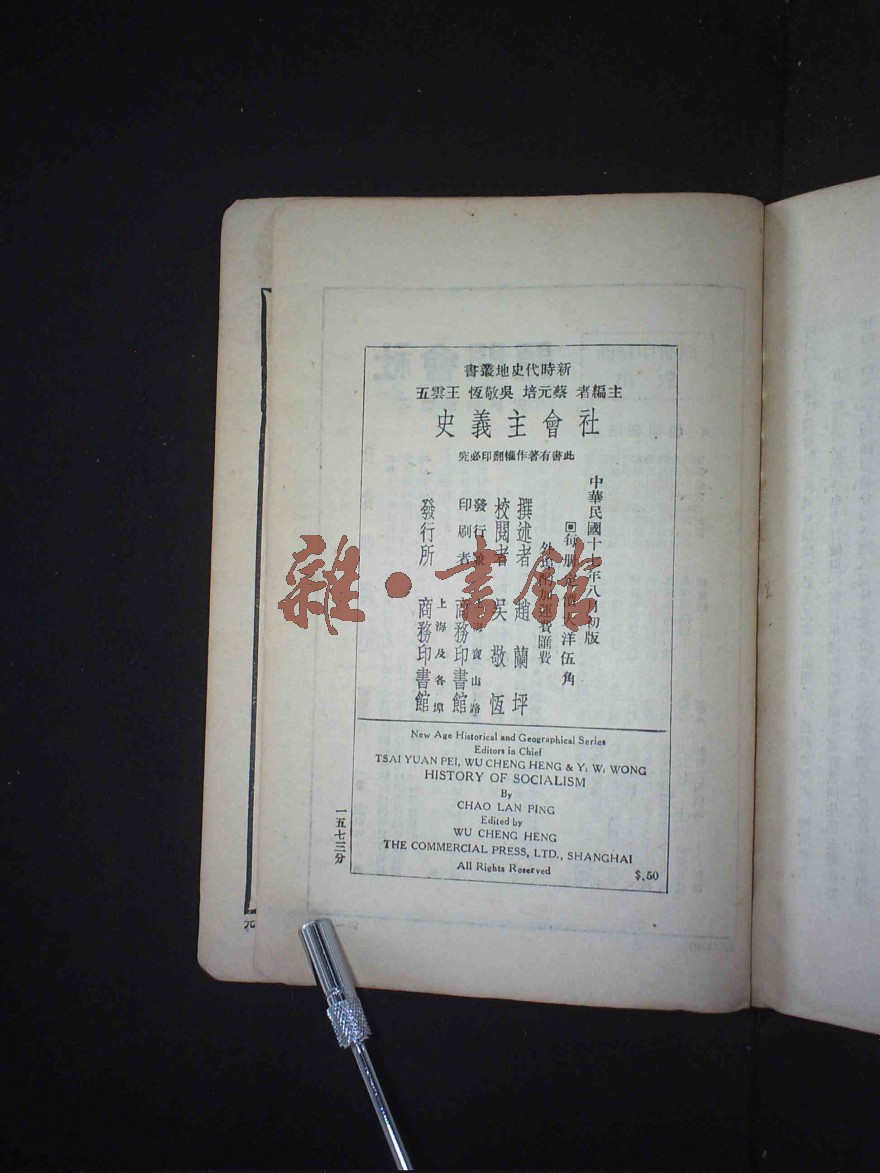 新時代史地叢書
主編者 蔡元培 吳敬恆 王雲五
社會主義史
此書有著作權翻印必究
中華民國十七年八月初版
每册定價大洋伍角
外埠酌加運費匯費
撰述者 趙蘭坪
校閱者 吳敬恆
發行兼印刷者 上海寶山路 商務印書館
發行所 上海及各埠 商務印書館
New Age Historical and Geographical Series
Editors in Chief
TSAI YUAN PEI, WU CHENG HENG & Y. W. WONG
HISTORY OF SOCIALISM
By
CHAO LAN PING
Edited by
WU CHENG HENG
THE COMMERCIAL PRESS, LTD., SHANGHAI
All Rights Reserved
$.50
一五七三分
雜·書館